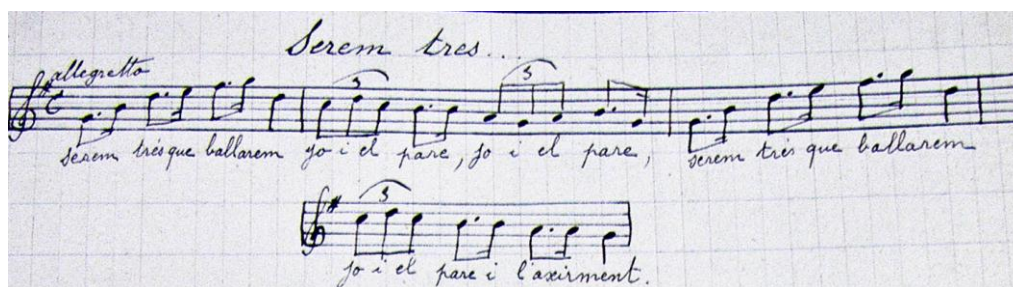 Serem tres...
allegretto
3 3
serem tres que ballarem jo i el pare, jo i el pare, serem tres que ballarem
3
jo i el pare i l'axirment.